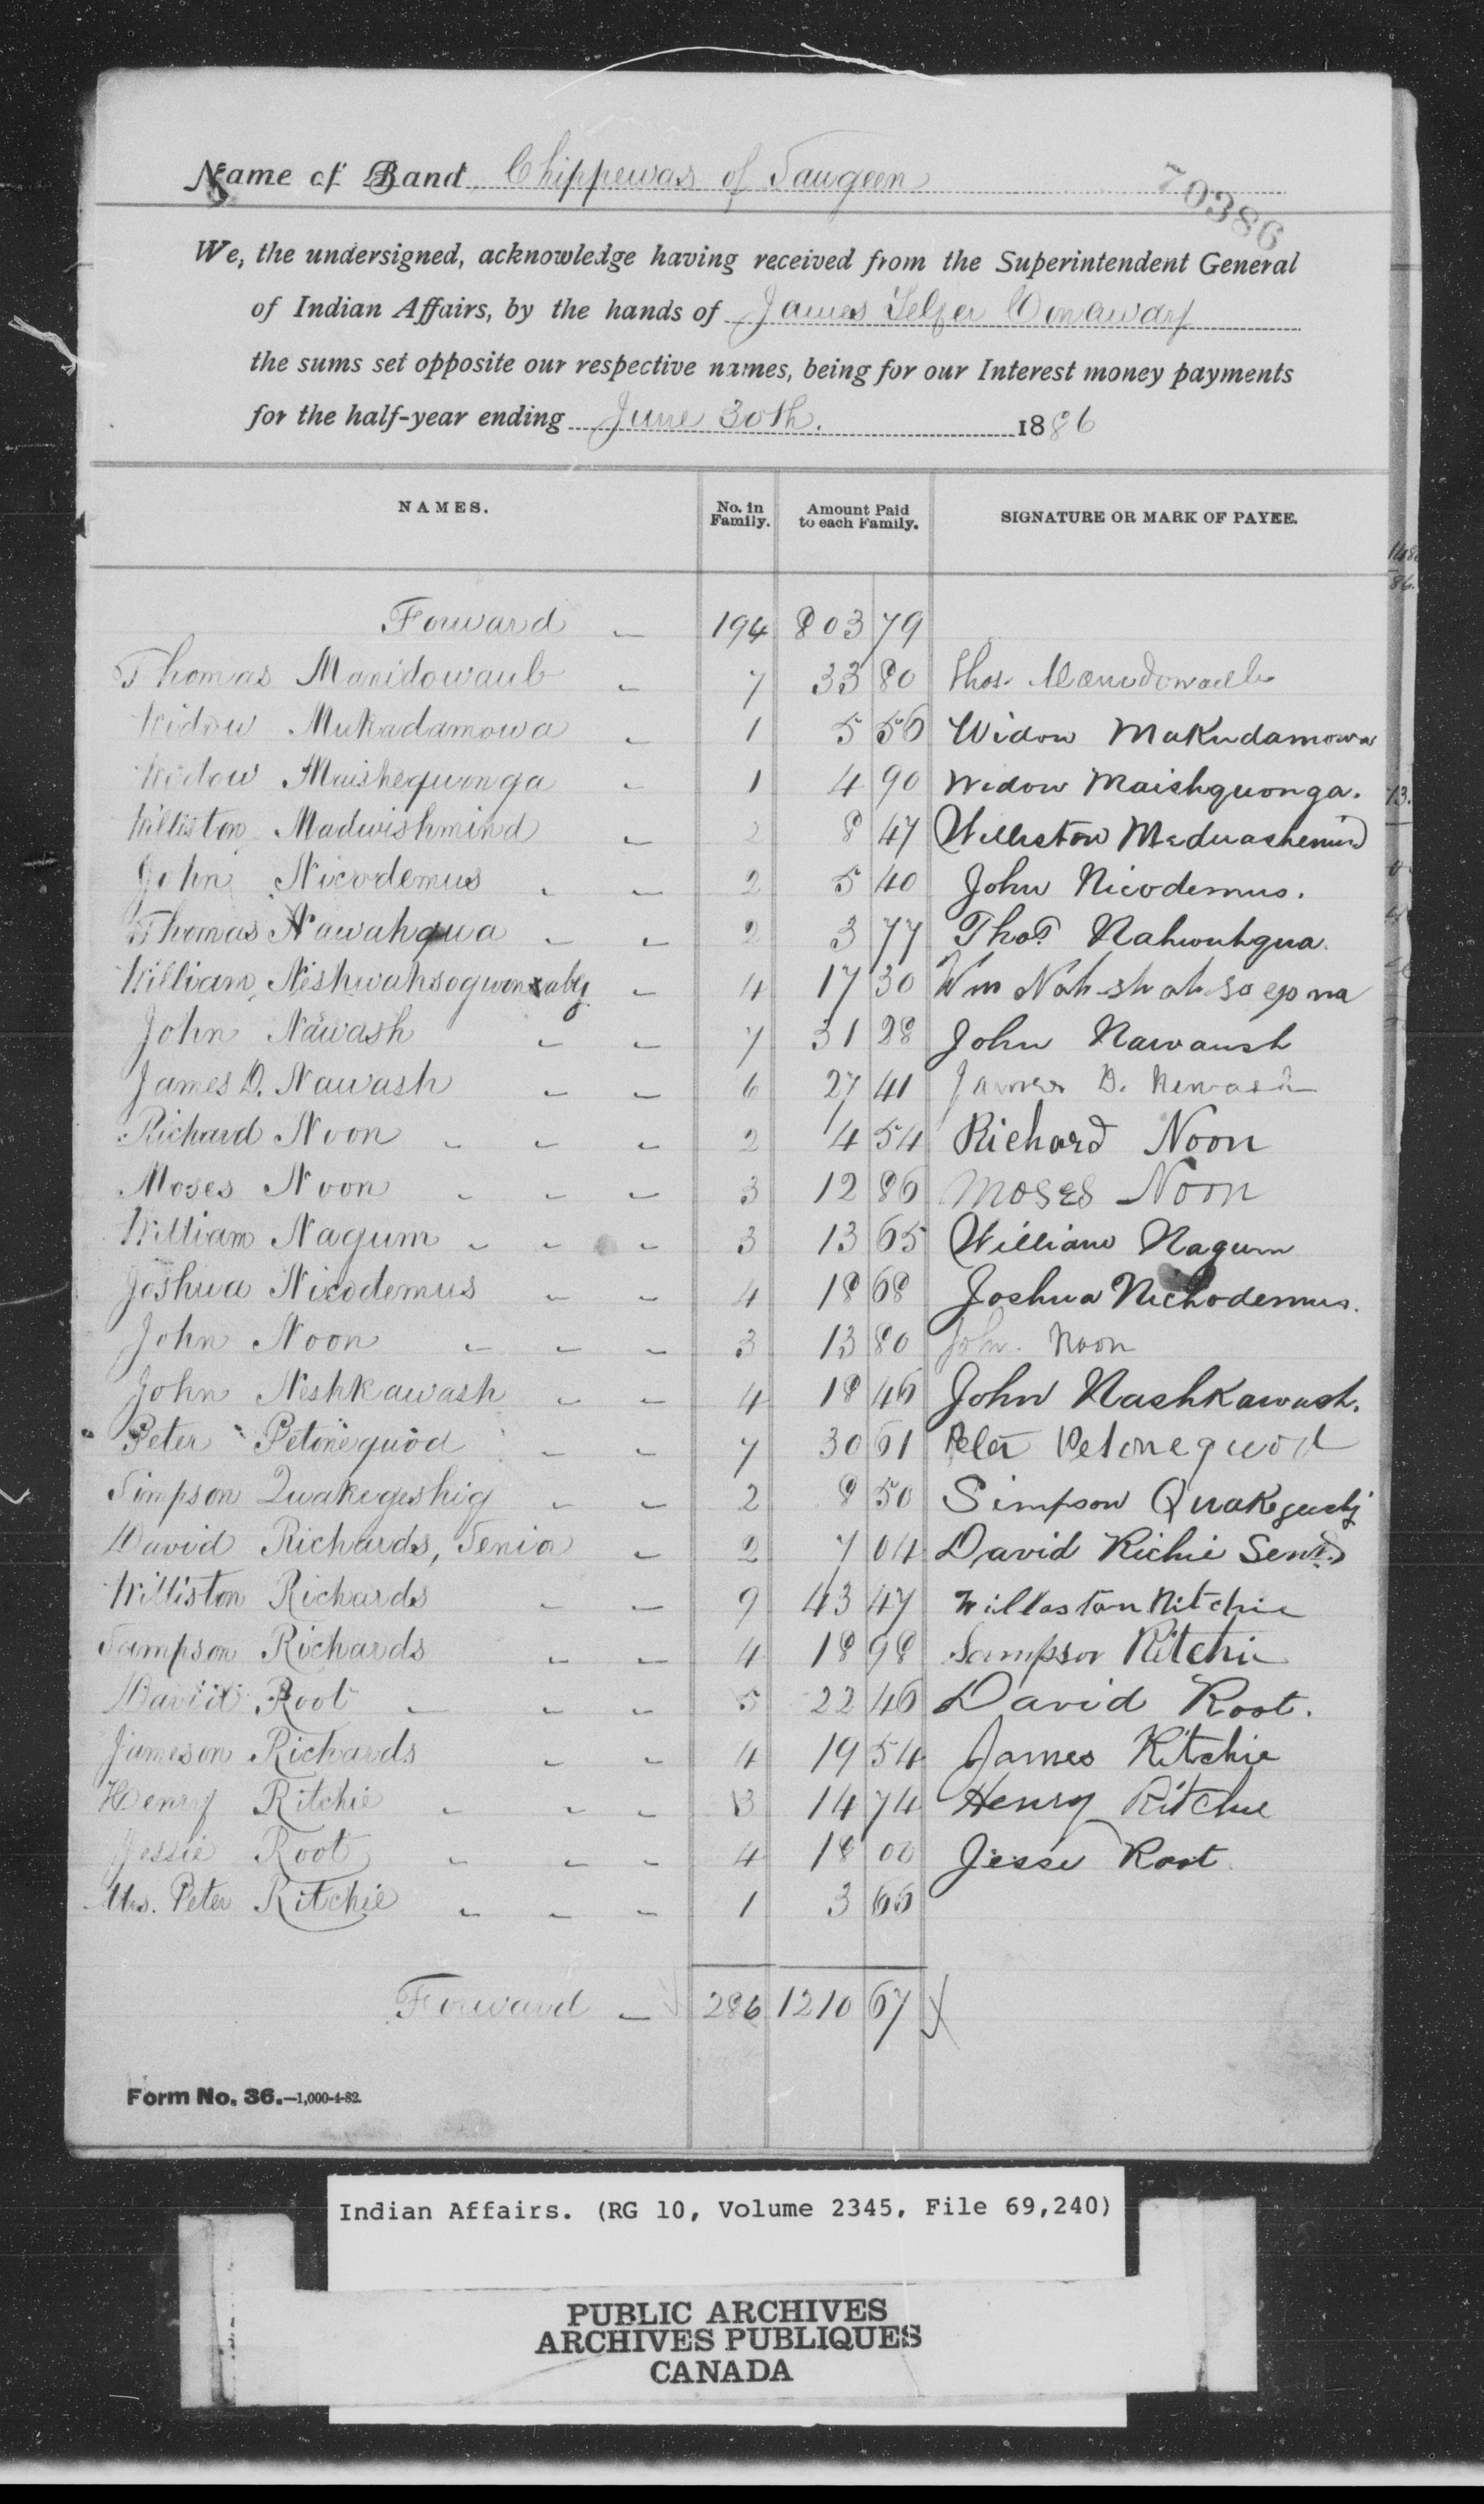 Name of Band Chippewas of Saugeen
70386
We, the undersigned, acknowledge having received from the Superintendent General
of Indian Affairs, by the hands of James Selfer Conaway
the sums set opposite our respective names, being for our Interest money payments
for the half-year ending June 30th. 1886
NAMES. No. in Family. Amount Paid to each Family. SIGNATURE OR MARK OF PAYEE.
Forward 194 803 79
Thomas Manidowaub 7 33 80 Thos. Manidowaub
Widow Mukadamowa 1 5 56 Widow Makudamowa
Widow Maishequonga 1 4 90 Widow Maishquonga.
Williston Madwishmind 2 8 47 Williston Madwashemind
John Nicodemus 2 5 40 John Nicodemus.
Thomas Nawahqua 2 3 77 Thos. Nahwuhqua.
William Neshwahsogwonaby 4 17 30 Wm Nah-shah so go na
John Nawash 7 31 28 John Nawaush
James D. Nawash 6 27 41 James D. Newash
Richard Noon 2 4 54 Richard Noon
Moses Noon 3 12 86 Moses Noon
William Nagum 3 13 65 William Nagum
Joshua Nicodemus 4 18 68 Joshua Nichodemus.
John Noon 3 13 80 John. Noon
John Neshkawash 4 18 46 John Nashkawash.
Peter Petonequod 7 30 61 Peter Petonequod
Simpson Quakegeshig 2 8 50 Simpson
David Richards, Senior 2 7 04 David Richie Senr.
Williston Richards 9 43 47 Willaston Ritchie
Sampson Richards 4 18 98 Sampson Ritchie
David Root 5 22 46 David Root.
Jameson Richards 4 19 54 James Ritchie
Henry Ritchie 3 14 74 Henry Ritchie
Jessie Root 4 18 00 Jesse Root
Mrs. Peter Ritchie 1 3 66
Forward 286 1210 67
Form No. 36.—1,000-4-82.
Indian Affairs. (RG 10, Volume 2345, File 69,240)
PUBLIC ARCHIVES
ARCHIVES PUBLIQUES
CANADA